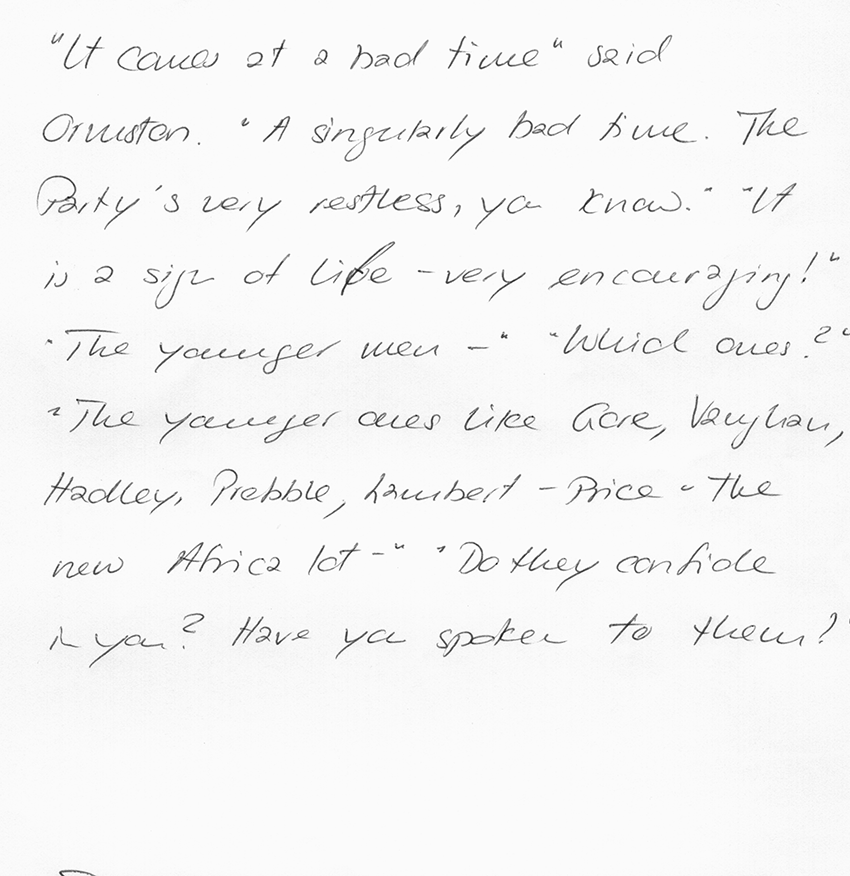 "It comes at a bad time" said
Ormston. "A singularly bad time. The
Party's very restless, you know." "It
is a sign of life - very encouraging!"
"The younger men -" "Which ones?"
"The younger ones like Gore, Vaughan,
Hadley, Prebble, Lambert - Price - the
new Africa lot -" "Do they confide
in you? Have you spoken to them?"